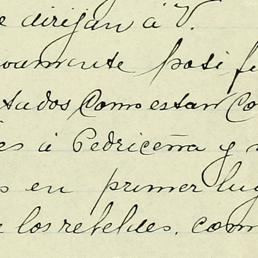 e dirijan á V.
vamente posi fe
tados como estan co
es á Pedriceña y
s en primer lug
e los rebeldes. com